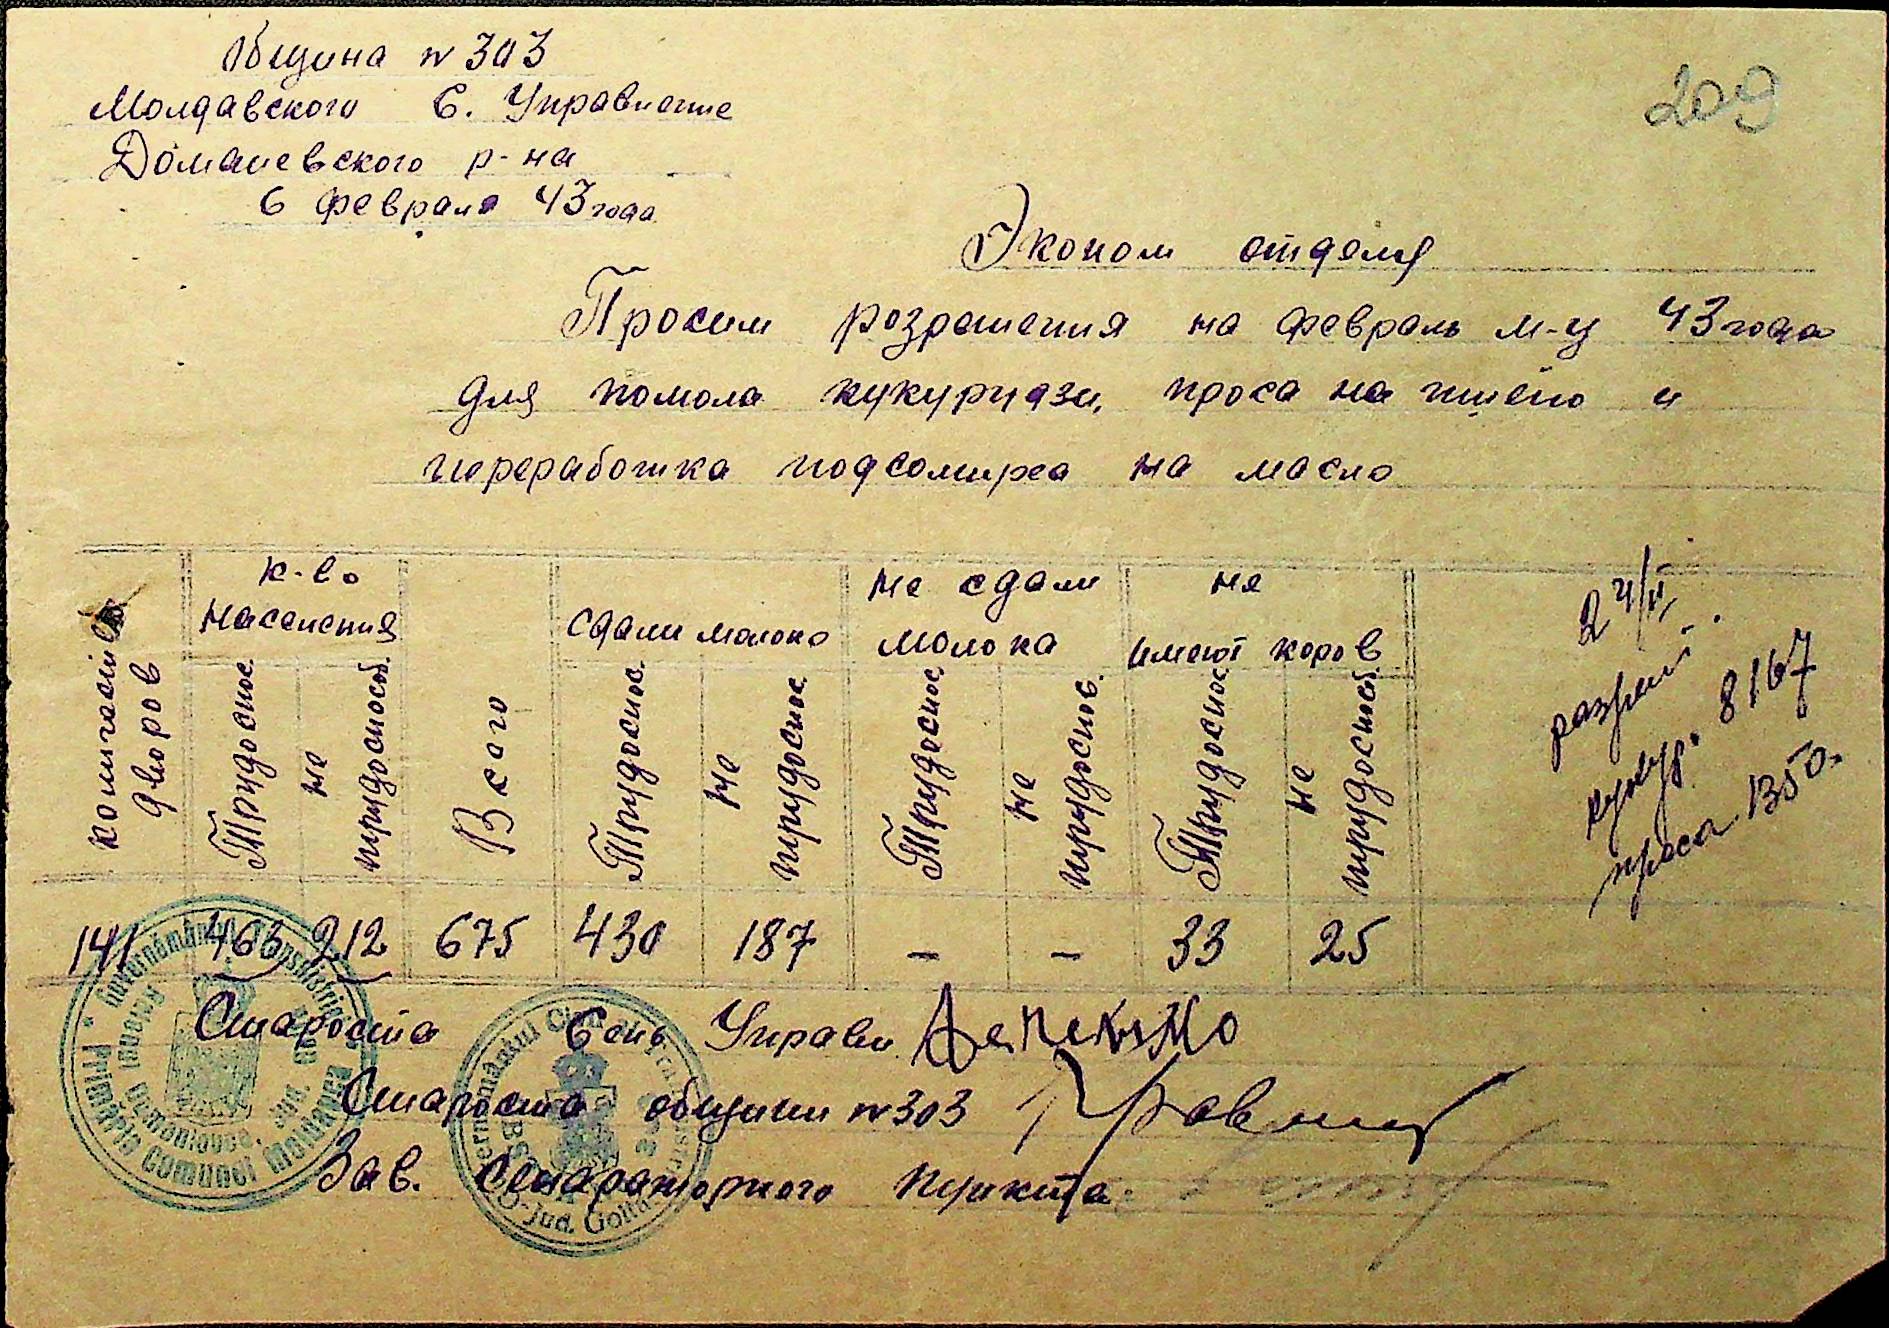 Община N 303
Молдавского С. Управление
Доманевского р-на
6 февраля 43 года
209
Эконом отделу
Просим розрешения на февраль м-ц 43 года
для помола кукурузи, проса на пшено и
переработка подсолнуха на масло
количество дворов
к-во населения
Трудоспос.
не трудоспособ.
Всего
сдали молоко
Трудоспос.
не трудоспос.
не сдали молока
Трудоспос.
не трудоспос.
не имеют коров
Трудоспос.
не трудоспособ.
141 463 212 675 430 187 – – 33 25
24/II
разреш.
кукур. 8167
проса 1350.
Староста Сель Управи
Староста общини N 303
Зав. Сепараторного пункта
Guvernământul Transnistriei
Primăria Comunei Moldavca
Jud. Golta